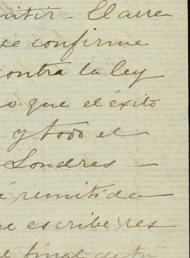 mitir. El aire
ue confirme
contra la ley
o que el éxito
y todo el
Londres -
é remitida
ue escribe res